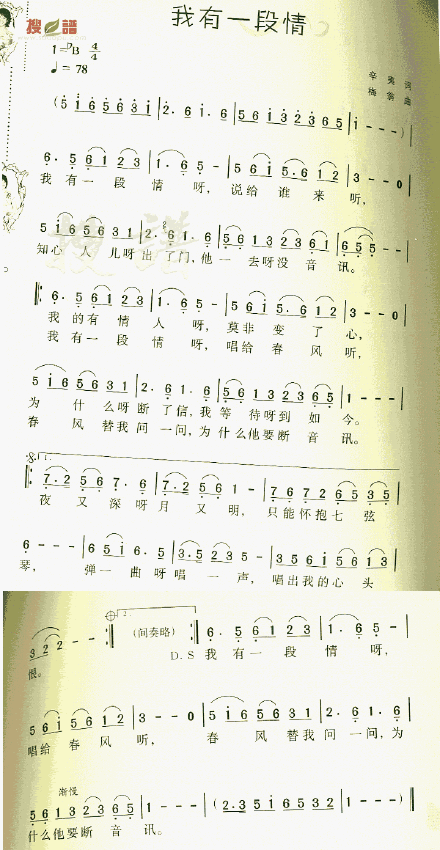 搜谱
我有一段情
1=♭B 4/4
♩=78
辛夷 词
梅翁 曲
(5 1 6 5 6 3 1 | 2· 6 1· 6 | 5 6 1 3 2 3 6 5 | 1 - - -)
6· 5 6 1 2 3 | 1· 6 5 - | 5 6 1 5· 6 1 2 | 3 - - 0
我 有 一 段 情 呀, 说给 谁 来 听,
5 1 6 5 6 3 1 | 2· 6 1· 6 | 5 6 1 3 2 3 6 1 | 6 5 5 - -
知心 人 儿呀 出 了门,他 一 去呀没 音 讯。
6· 5 6 1 2 3 | 1· 6 5 - | 5 6 1 5· 6 1 2 | 3 - - 0
我 的 有 情 人 呀, 莫非 变 了 心,
我 有 一 段 情 呀, 唱给 春 风 听,
5 1 6 5 6 3 1 | 2· 6 1· 6 | 5 6 1 3 2 3 6 5 | 1 - - -
为 什 么呀 断 了信,我 等 待呀到 如 今。
春 风 替我 问 一问,为 什么他要断 音 讯。
1.
7· 2 5 6 7· 6 | 7· 2 5 6 1 - | 7 6 7 2 6 5 3 5
夜 又 深 呀 月 又 明, 只能 怀抱 七 弦
6 - - - | 6 5 1 6· 5 | 3· 5 2 3 5 - | 3 5 6 1 5 6 1 3
琴, 弹 一 曲 呀 唱 一 声, 唱出我的心 头
3 2 2 - - (间奏略) 2. 6· 5 6 1 2 3 | 1· 6 5 -
恨。 D.S 我 有 一 段 情 呀,
5 6 1 5 6 1 2 | 3 - - 0 | 5 1 6 5 6 3 1 | 2· 6 1· 6
唱给 春 风 听, 春 风 替我 问 一问,为
渐慢
5 6 1 3 2 3 6 5 | 1 - - - | (2· 3 5 1 6 5 3 2 | 1 - - -)
什么他要断 音 讯。